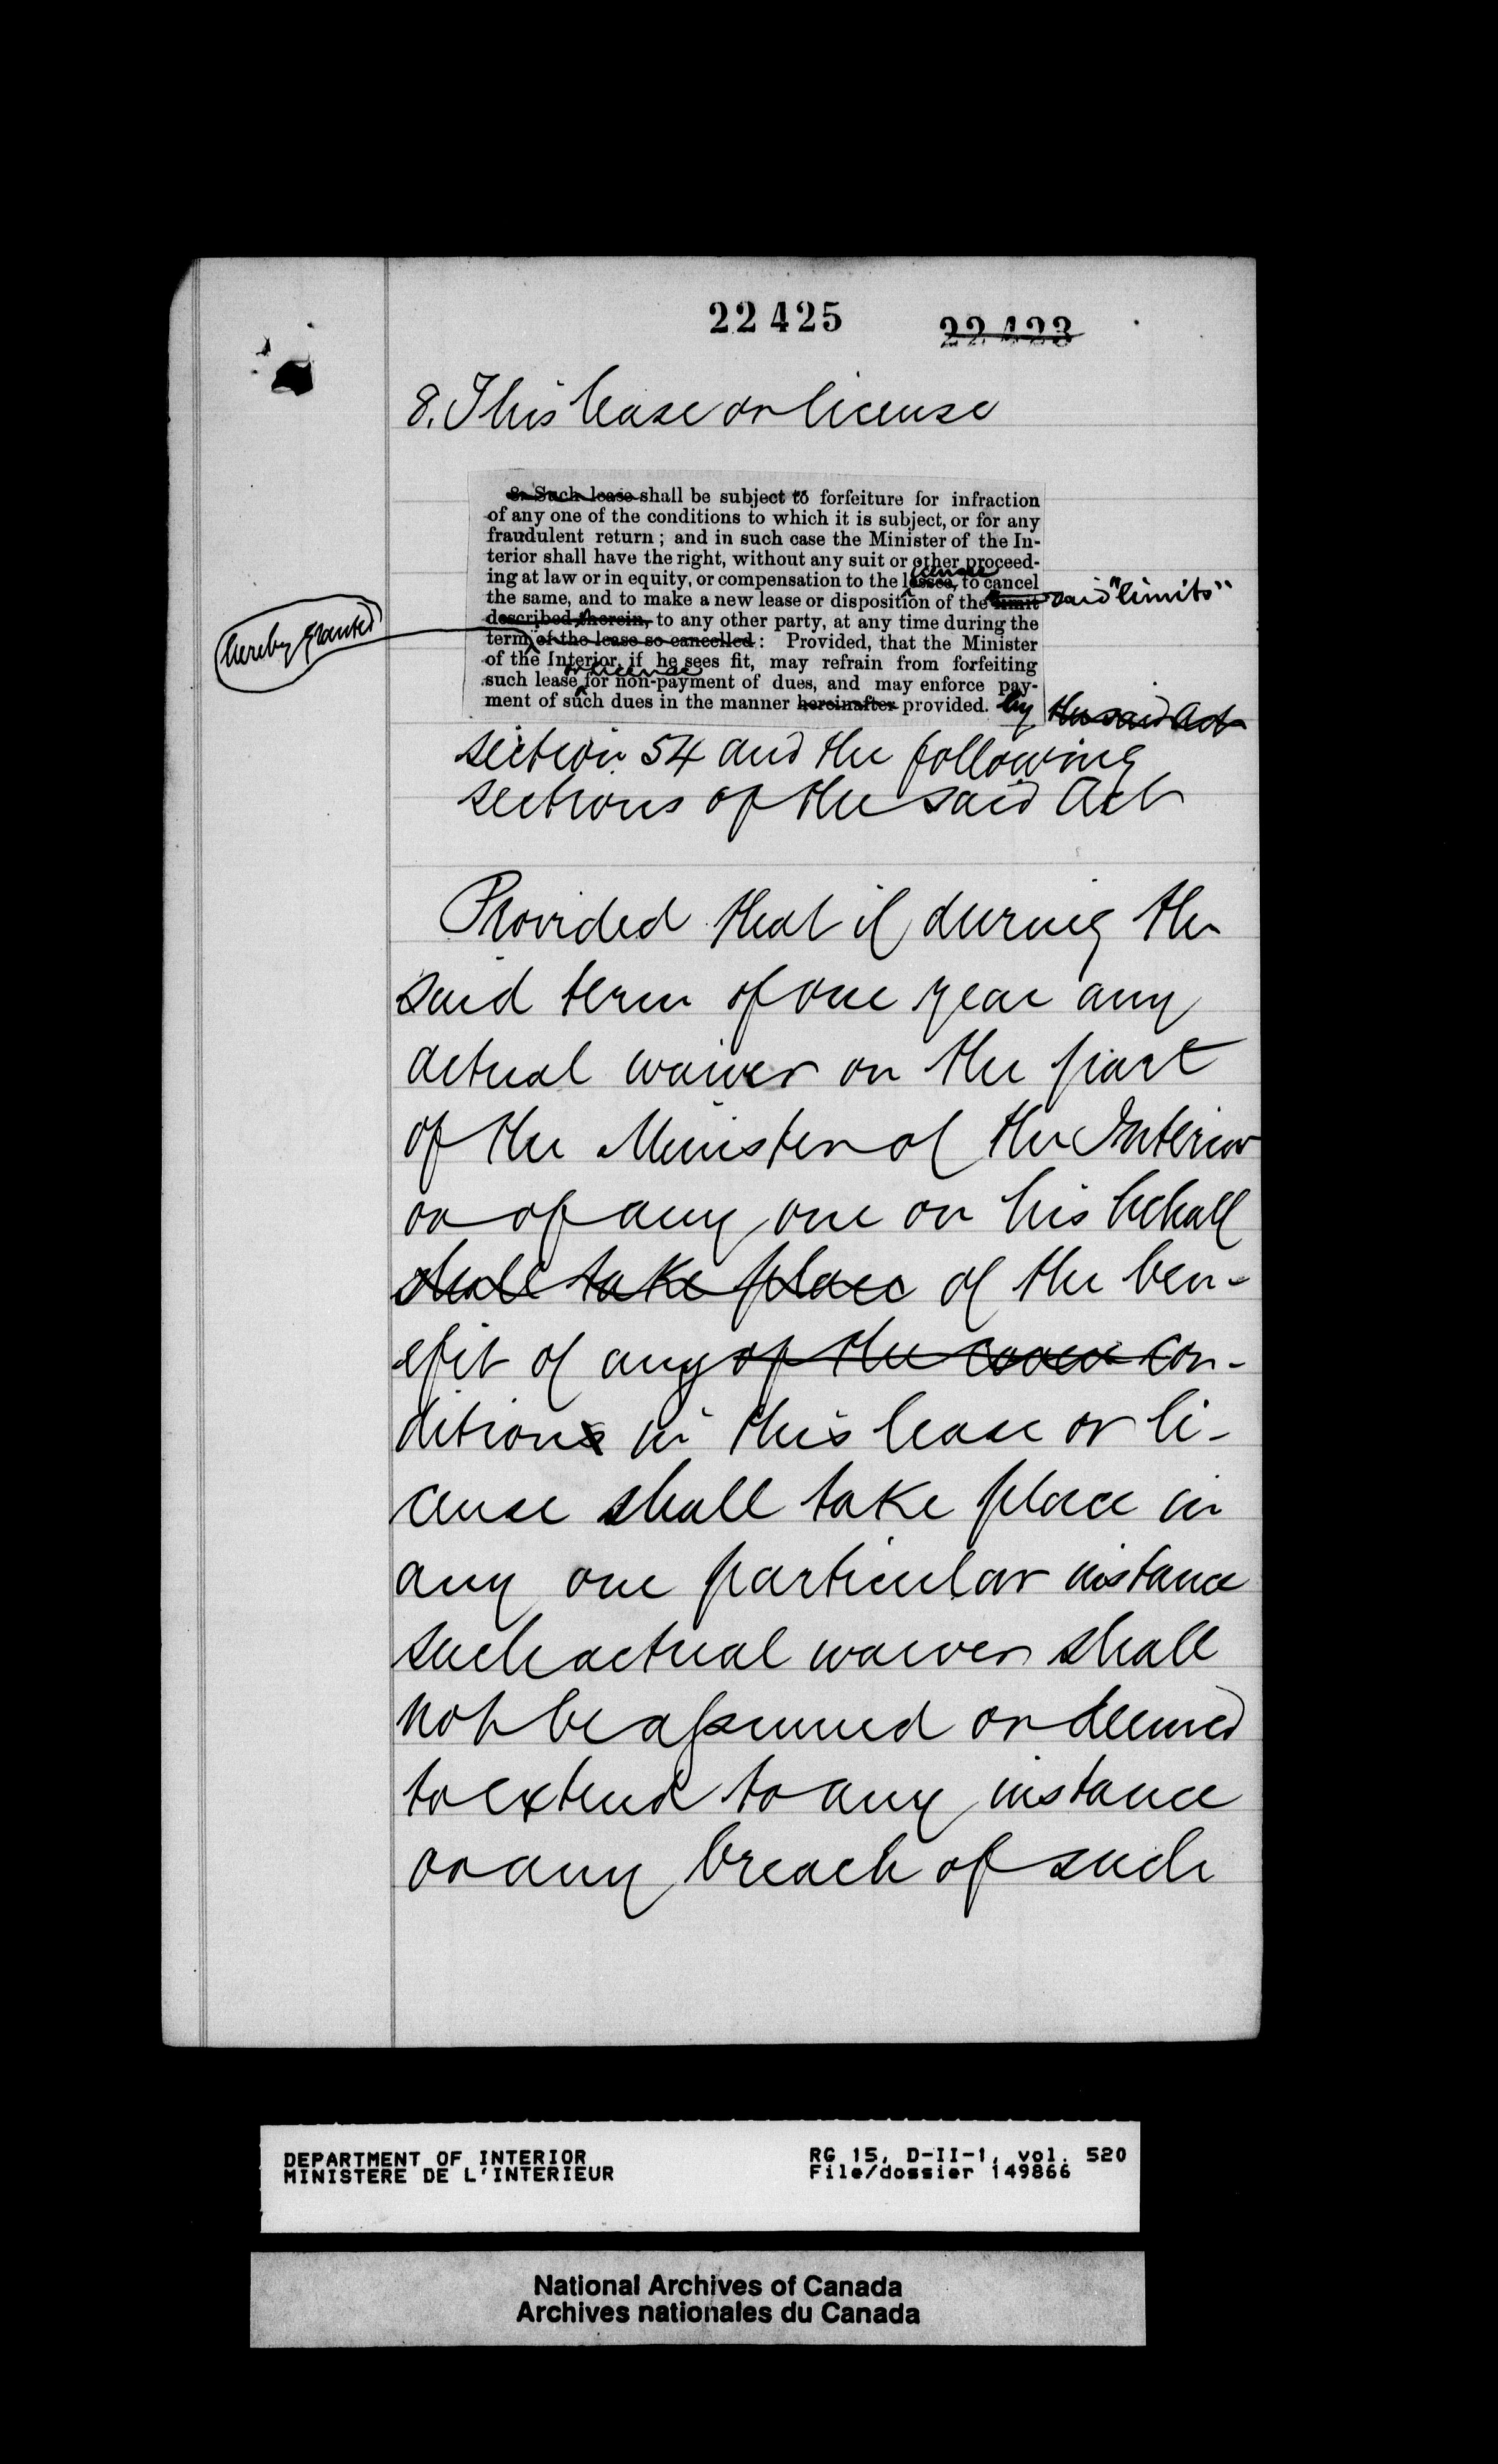 22425 22423
8. This lease or license
8. Such lease shall be subject to forfeiture for infraction
of any one of the conditions to which it is subject, or for any
fraudulent return ; and in such case the Minister of the In-
terior shall have the right, without any suit or other proceed-
licensee
ing at law or in equity, or compensation to the lessee, to cancel
the same, and to make a new lease or disposition of the limit said "limits"
described therein, to any other party, at any time during the
hereby granted
term of the lease so cancelled : Provided, that the Minister
of the Interior, if he sees fit, may refrain from forfeiting
or license
such lease for non-payment of dues, and may enforce pay-
ment of such dues in the manner hereinafter provided. by the said Act
section 54 and the following
sections of the said Act
Provided that if during the
said term of one year any
actual waiver on the part
of the Minister of the Interior
or of any one on his behalf
shall take place of the ben-
efit of any of the con-
ditions in this lease or li-
cense shall take place in
any one particular instance
such actual waiver shall
not be assumed or deemed
to extend to any instance
or any breach of such
DEPARTMENT OF INTERIOR
MINISTERE DE L'INTERIEUR
RG 15, D-II-1, vol. 520
File/dossier 149866
National Archives of Canada
Archives nationales du Canada